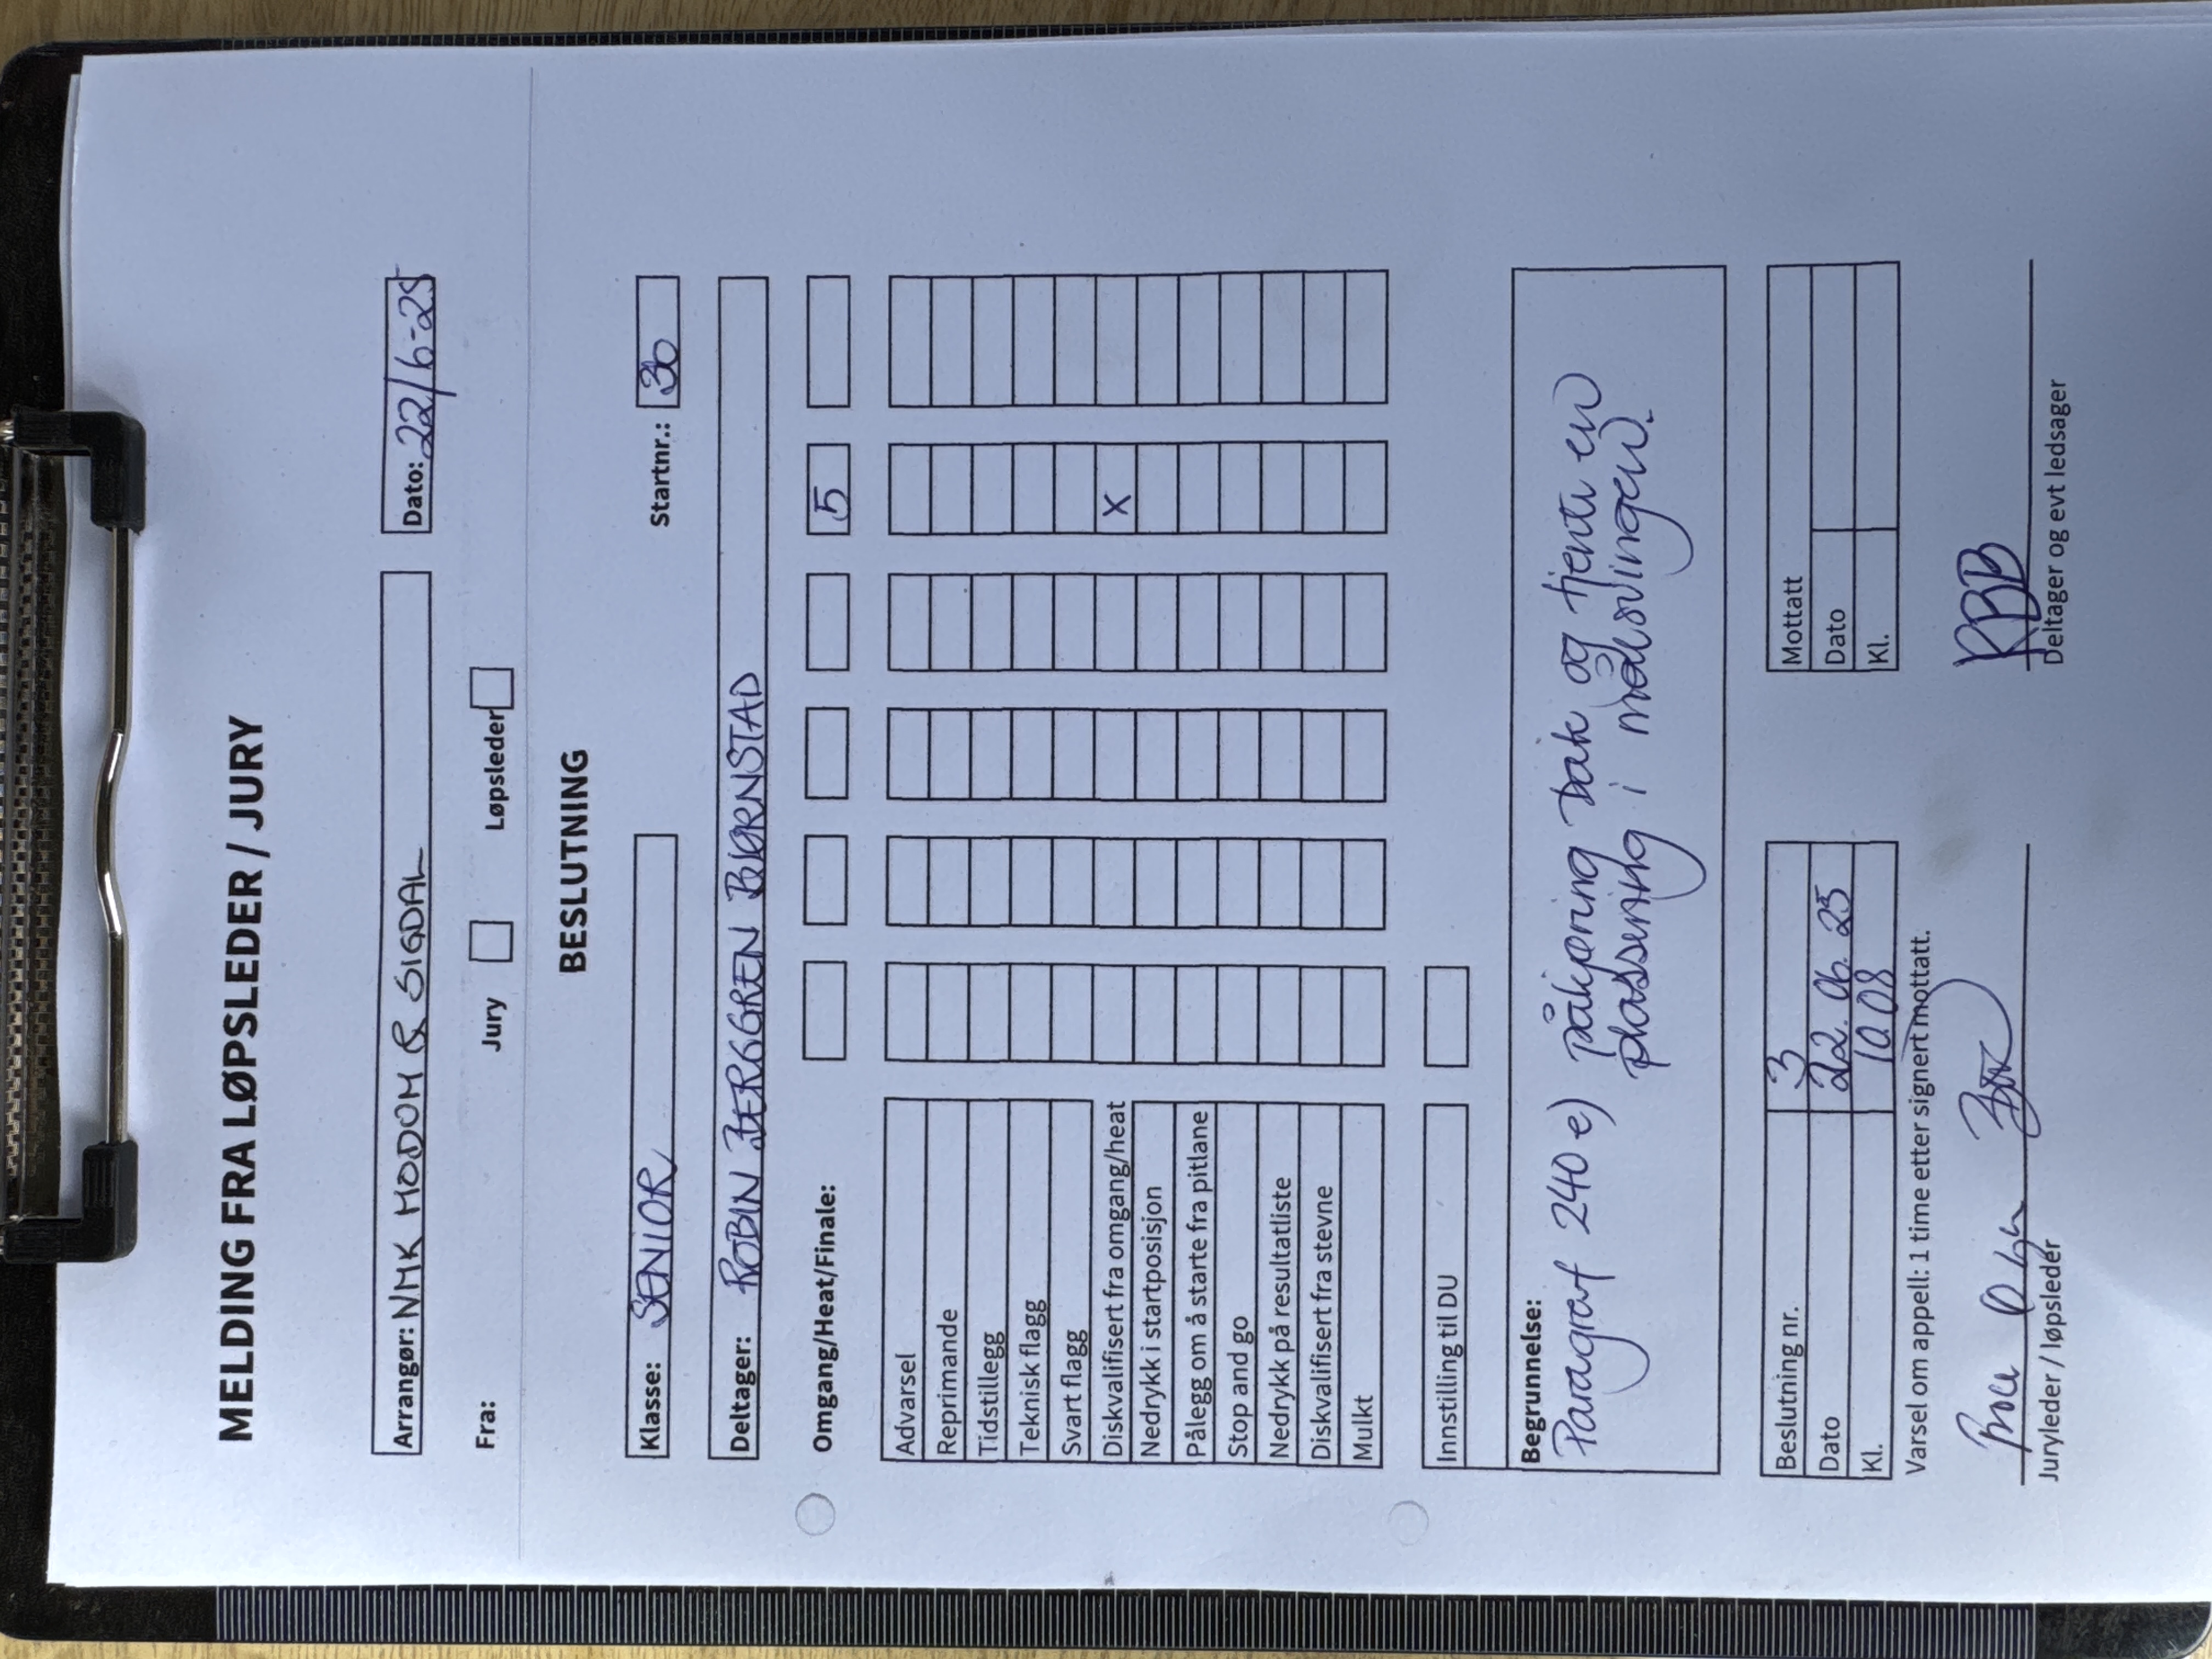 MELDING FRA LØPSLEDER / JURY
Arrangør: NMK MODUM & SIGDAL Dato: 22/6-25
Fra: Jury Løpsleder
BESLUTNING
Klasse: SENIOR Startnr.: 30
Deltager: ROBIN BERGGREN BJØRNSTAD
Omgang/Heat/Finale: 5
Advarsel
Reprimande
Tidstillegg
Teknisk flagg
Svart flagg
Diskvalifisert fra omgang/heat X
Nedrykk i startposisjon
Pålegg om å starte fra pitlane
Stop and go
Nedrykk på resultatliste
Diskvalifisert fra stevne
Mulkt
Innstilling til DU
Begrunnelse:
Paragraf 240 e) påkjøring bak og tjente en
plassering i målsvingen.
Beslutning nr. 3 Mottatt
Dato 22.06.25 Dato
Kl. 10.08 Kl.
Varsel om appell: 1 time etter signert mottatt.
RBB
Juryleder / løpsleder Deltager og evt ledsager